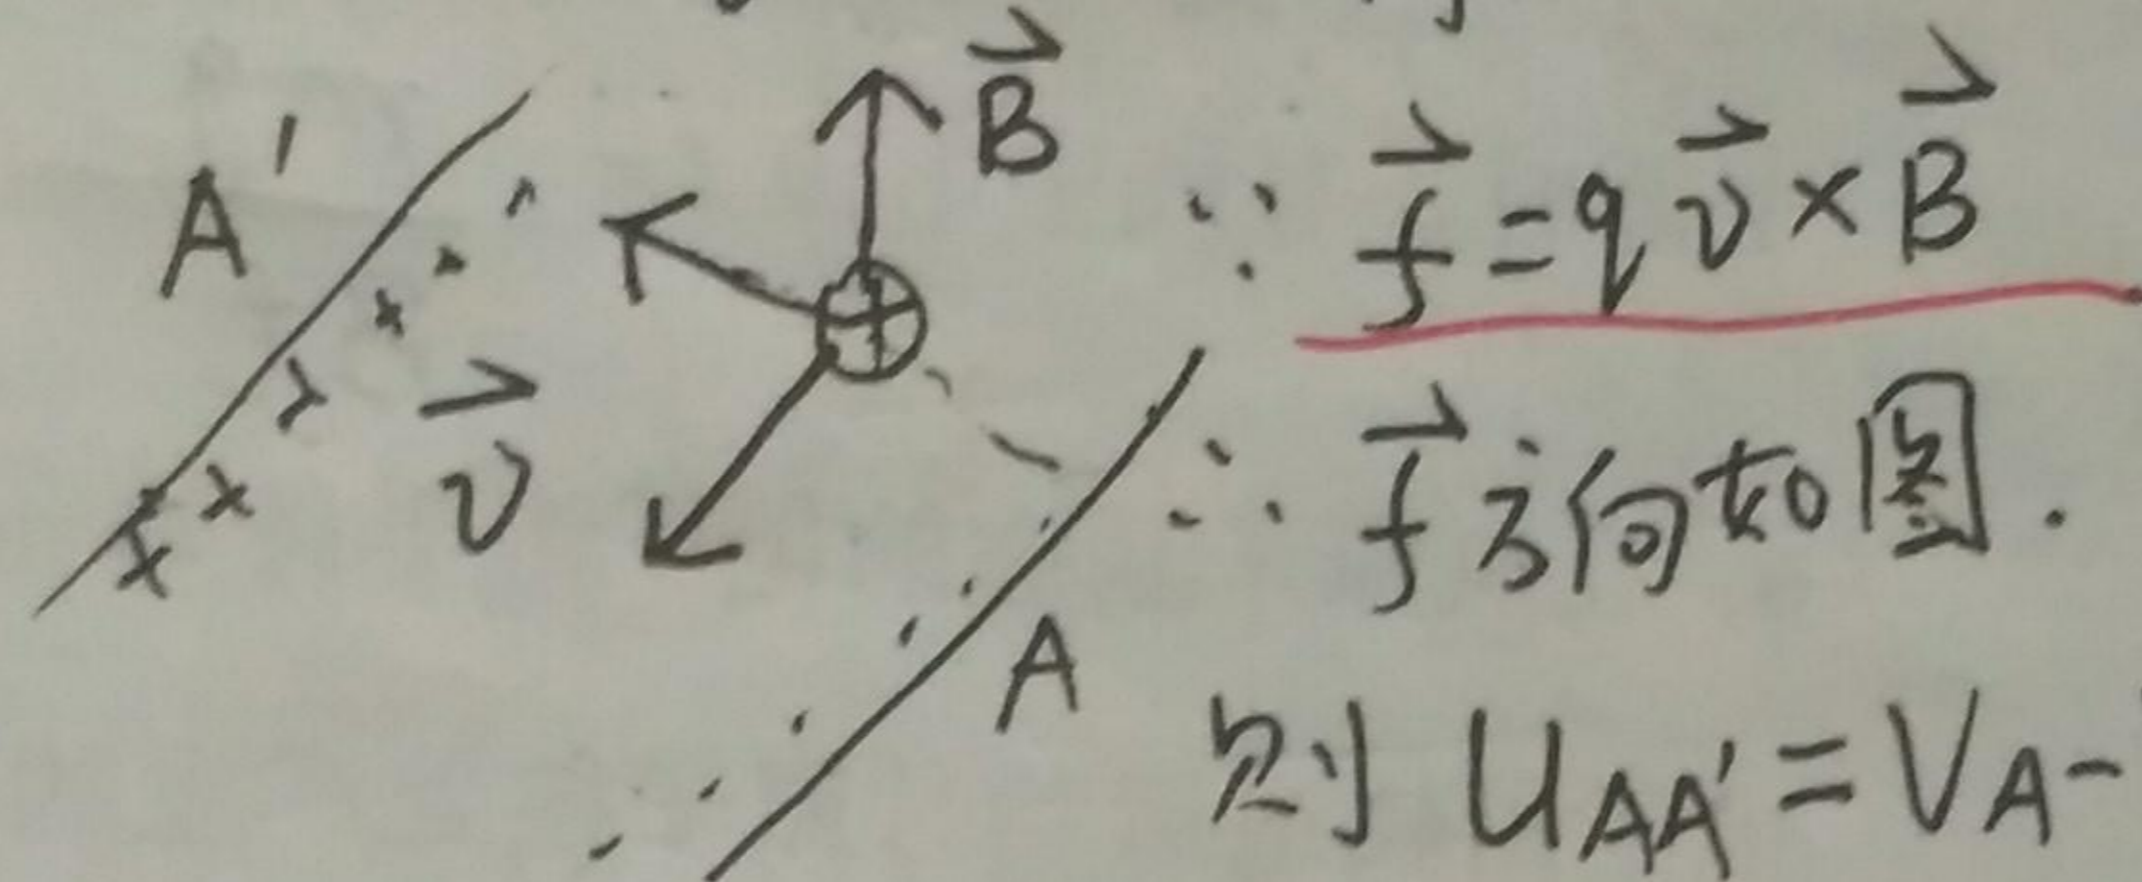 A'
B⃗
v⃗
A
∵ f⃗ = q v⃗ × B⃗
∴ f⃗ 方向如图.
则 U_AA' = V_A -